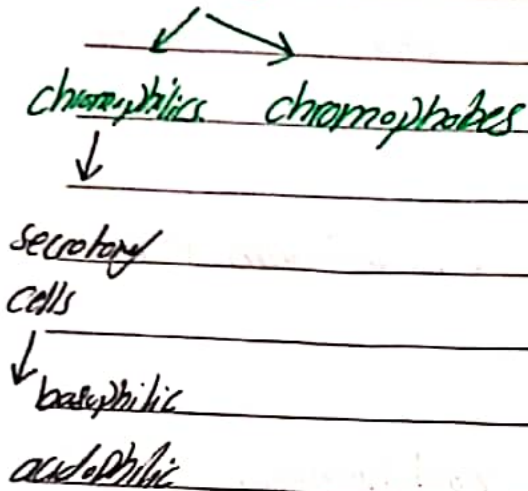 chromophilics chromophobes
secretory
cells
basophilic
acidophilic